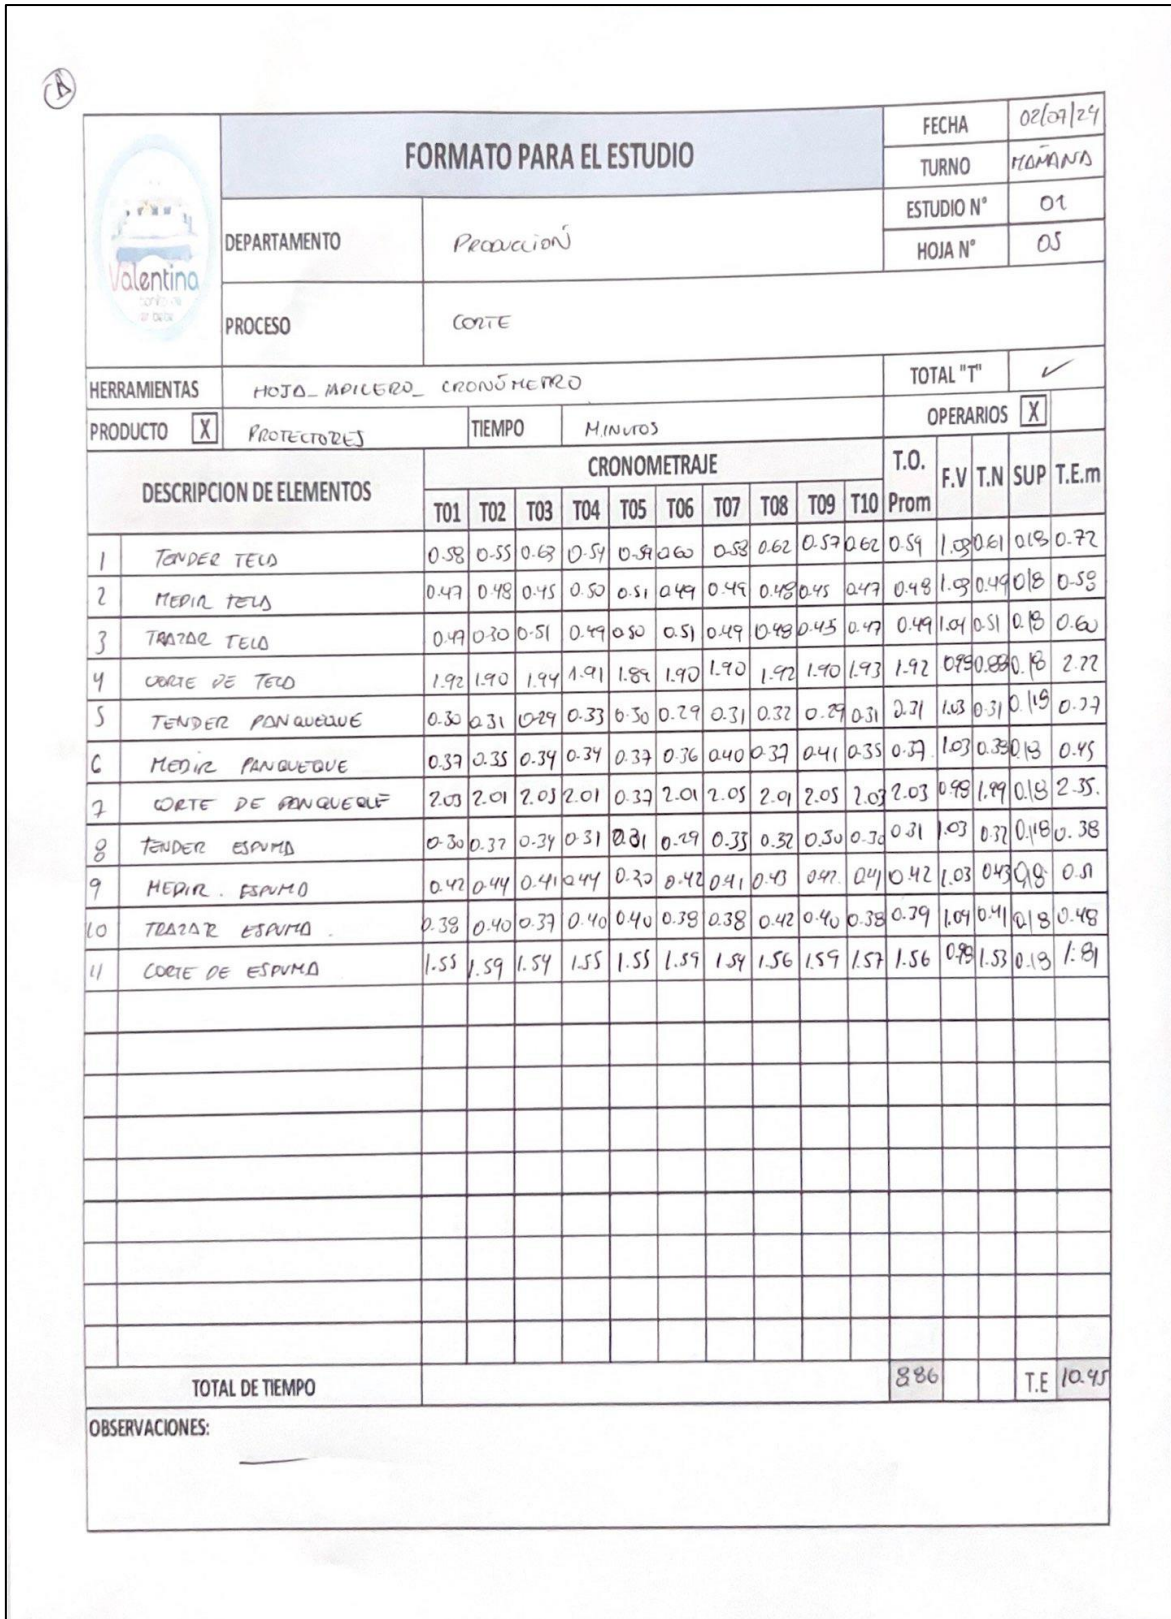 FORMATO PARA EL ESTUDIO
FECHA 02/07/24
TURNO MAÑANA
ESTUDIO N° 01
HOJA N° 05
Valentina
DEPARTAMENTO PRODUCCIÓN
PROCESO CORTE
HERRAMIENTAS HOJA_LAPICERO_CRONÓMETRO TOTAL "T" ✓
PRODUCTO X PROTECTORES TIEMPO MINUTOS OPERARIOS X
DESCRIPCION DE ELEMENTOS CRONOMETRAJE T.O. Prom F.V T.N SUP T.E.m
T01 T02 T03 T04 T05 T06 T07 T08 T09 T10
1 TENDER TELA 0.58 0.55 0.63 0.59 0.59 0.60 0.58 0.62 0.57 0.62 0.59 1.03 0.61 0.18 0.72
2 MEDIR TELA 0.47 0.48 0.45 0.50 0.51 0.49 0.49 0.48 0.45 0.47 0.48 1.03 0.49 0.18 0.58
3 TRAZAR TELA 0.49 0.30 0.51 0.49 0.50 0.51 0.49 0.48 0.45 0.47 0.49 1.04 0.51 0.18 0.60
4 CORTE DE TELA 1.92 1.90 1.94 1.91 1.89 1.90 1.90 1.92 1.90 1.93 1.92 0.98 0.18 2.22
5 TENDER PANQUEQUE 0.30 0.31 0.29 0.33 0.30 0.29 0.31 0.32 0.29 0.31 0.31 1.03 0.31 0.18 0.37
6 MEDIR PANQUEQUE 0.37 0.35 0.34 0.34 0.37 0.36 0.40 0.37 0.41 0.35 0.37 1.03 0.38 0.18 0.45
7 CORTE DE PANQUEQUE 2.03 2.01 2.05 2.01 0.37 2.01 2.05 2.01 2.05 2.03 2.03 0.98 1.99 0.18 2.35.
8 TENDER ESPUMA 0.30 0.37 0.34 0.31 0.31 0.29 0.33 0.32 0.30 0.30 0.31 1.03 0.32 0.18 0.38
9 MEDIR. ESPUMA 0.42 0.44 0.41 0.44 0.30 0.42 0.41 0.43 0.42. 0.41 0.42 1.03 0.43 0.18 0.51
10 TRAZAR ESPUMA. 0.38 0.40 0.37 0.40 0.40 0.38 0.38 0.42 0.40 0.38 0.39 1.04 0.41 0.18 0.48
11 CORTE DE ESPUMA 1.55 1.59 1.54 1.55 1.55 1.59 1.54 1.56 1.59 1.57 1.56 0.98 1.53 0.18 1.81
TOTAL DE TIEMPO 8.86 T.E 10.45
OBSERVACIONES: